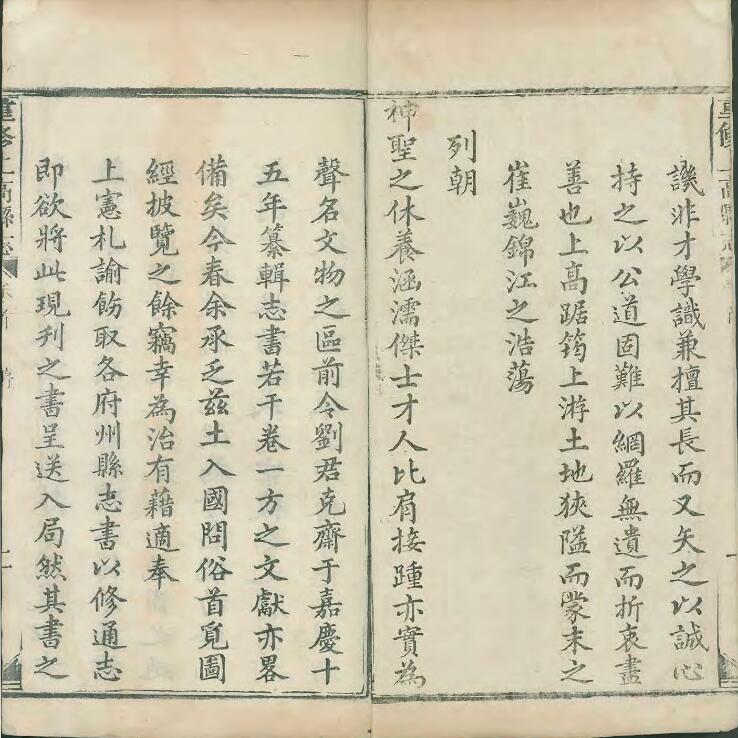 譏非才學識兼擅其長而又矢之以誠心
持之以公道固難以網羅無遺而折衷盡
善也上高踞筠上游土地狹隘而蒙末之
崔巍錦江之浩蕩
列朝
神聖之休養涵濡傑士才人比肩接踵亦實為
聲名文物之區前令劉君克齋于嘉慶十
五年纂輯志書若干卷一方之文獻亦畧
備矣今春余承乏茲土入國問俗首覓圖
經披覽之餘竊幸為治有藉適奉
上憲札諭飭取各府州縣志書以修通志
即欲將此現刋之書呈送入局然其書之
重修上高縣志